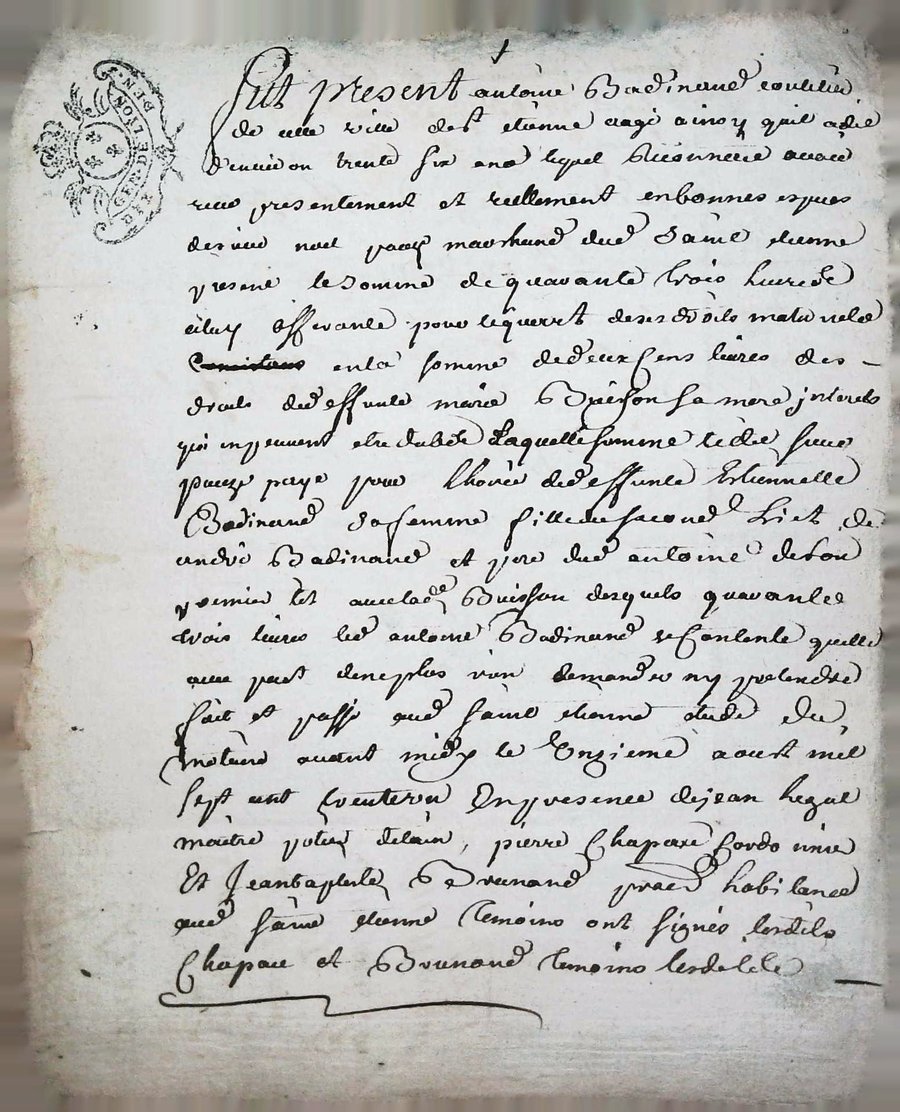 GEN. DE LYON
DEN.
Fut present antoine Badinand coutelier
de cette ville de st etienne aagé ainsy quil a dit
denviron trente six ans lequel
receu presentement et reellement en bonnes especes
de sieur noel marchand dud saint etienne
present le somme de quarante trois livres
pour de ses droits maternels
en la somme de deux cens livres des
droits de deffunte marie Buisson sa mere interets
qui en peuvent etre dubs laquelle somme led sieur
paye pour de deffunte Estiennette
Badinand sa femme fille du second Lict de
andré Badinand et pere dud antoine de son
premier lit avec lade Buisson desquels quarante
trois livres led antoine Badinand se contente quitte
avec pact de ne plus rien demander ny pretendre
fait et passé aud saint etienne etude du
notaire avant midy le onzieme aoust mil
sept cent trente En presence de jean
maitre potier detain, pierre Chapave Cordonnier
Et Jean baptiste Brunand praen habitants
aud saint etienne temoins ont signés lesdits
Chapave et Brunand temoins